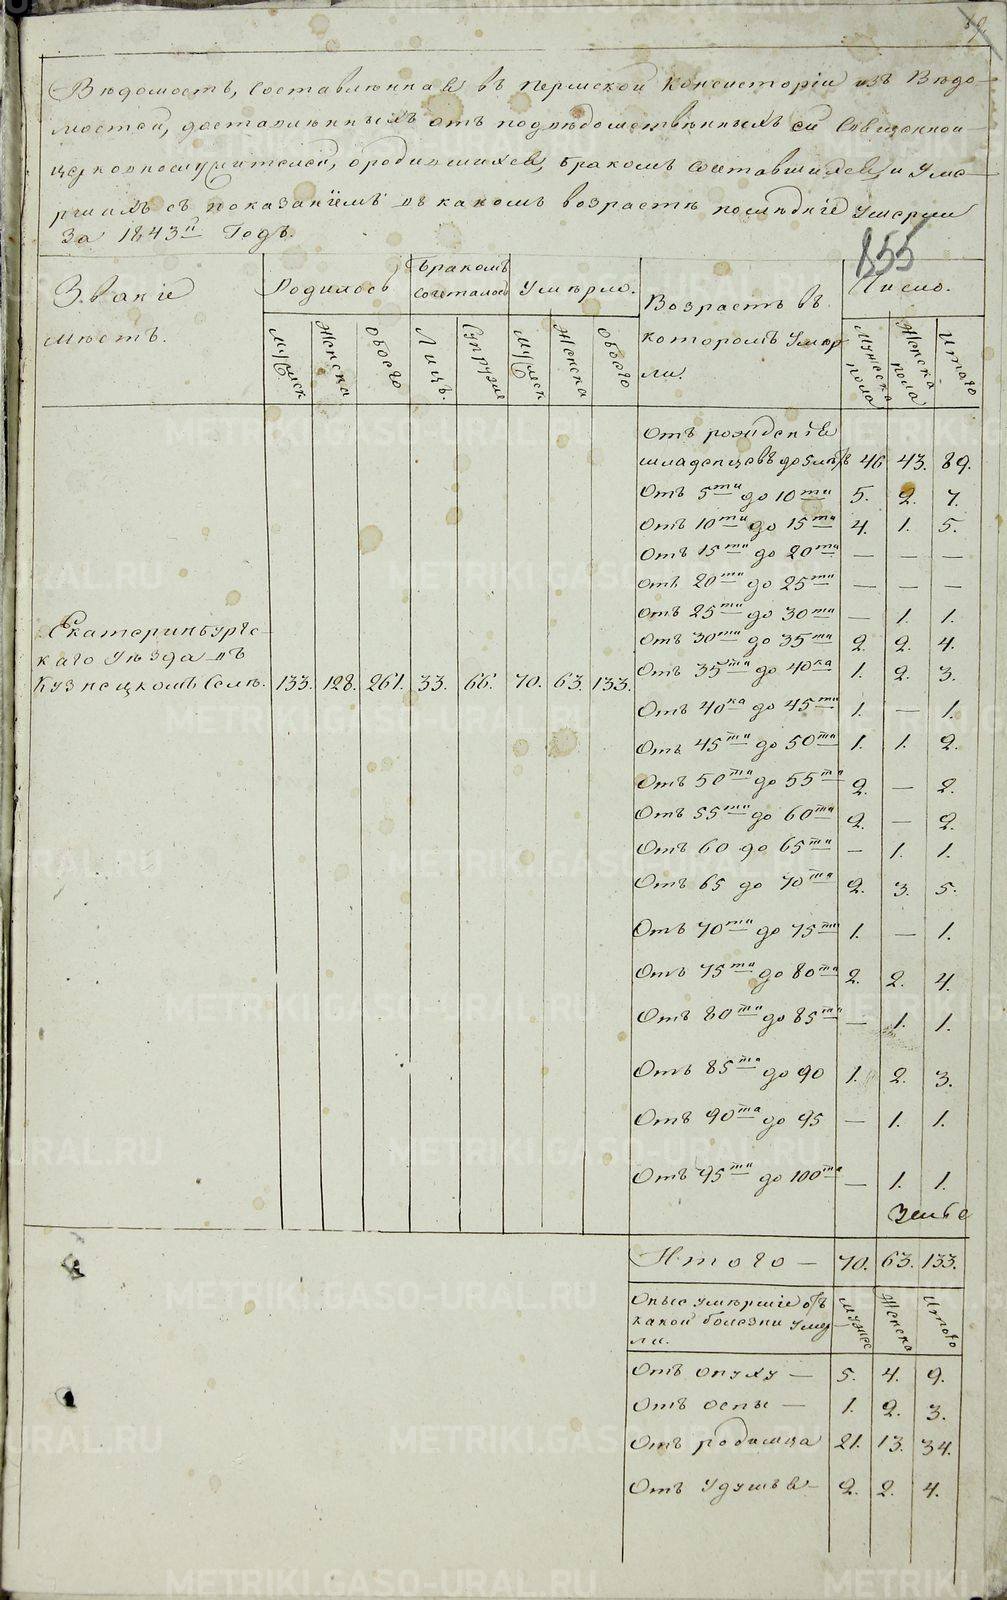 59.
Вѣдомость, составлѣнная въ Пермской Консисторіи изъ Вѣдо-
мостей, доставлѣнныхъ отъ подвѣдомственныхъ ей Священно
церковнослужителей, о родившихся, бракомъ сочетавшихся, и Уме-
ршихъ съ показаніемъ въ какомъ возрастѣ послѣдніе Умерли
За 1843й Годъ.
855
Званіе
мѣстъ.
Родилось
Мужеск
Женска
Обоего
Бракомъ
сочеталось
Лицъ.
Супружес
Умѣрло.
Мужеск
Женска
Обоего
Возрастъ въ
которомъ Умѣр
ли.
Число.
Мужеска
пола
Женска
пола
Итого
Отъ рожденія
младенцевъ до 5 лѣтъ 46 43. 89.
Отъ 5ти до 10ти 5. 2. 7.
Отъ 10ти до 15ти 4. 1. 5.
Отъ 15ти до 20ти — — —
Отъ 20ти до 25ти — — —
Отъ 25ти до 30ти — 1. 1.
Отъ 30ти до 35ти 2. 2. 4.
Отъ 35ти до 40ка 1. 2. 3.
Отъ 40ка до 45ти 1. — 1.
Отъ 45ти до 50ти 1. 1. 2.
Отъ 50ти до 55ти 2. — 2.
Отъ 55ти до 60ти 2. — 2.
Отъ 60 до 65ти — 1. 1.
Отъ 65 до 70ти 2. 3. 5.
Отъ 70ти до 75ти 1. — 1.
Отъ 75ти до 80ти 2. 2. 4.
Отъ 80ти до 85ти — 1. 1.
Отъ 85ти до 90 1. 2. 3.
Отъ 90та до 95 — 1. 1.
Отъ 95ти до 100та — 1. 1.
Екатеринбургс-
каго Уѣзда въ
Кузнецкомъ Селѣ. 133. 128. 261. 33. 66. 70. 63. 133.
Итого — 70. 63. 133.
Оные умѣршіе отъ
какой болезни Умер
ли.
Мужес
Женска
Итого
Отъ опуху — 5. 4. 9.
Отъ оспы — 1. 2. 3.
Отъ родимца 21. 13. 34.
Отъ Удушья — 2. 2. 4.
METRIKI.GASO-URAL.RU